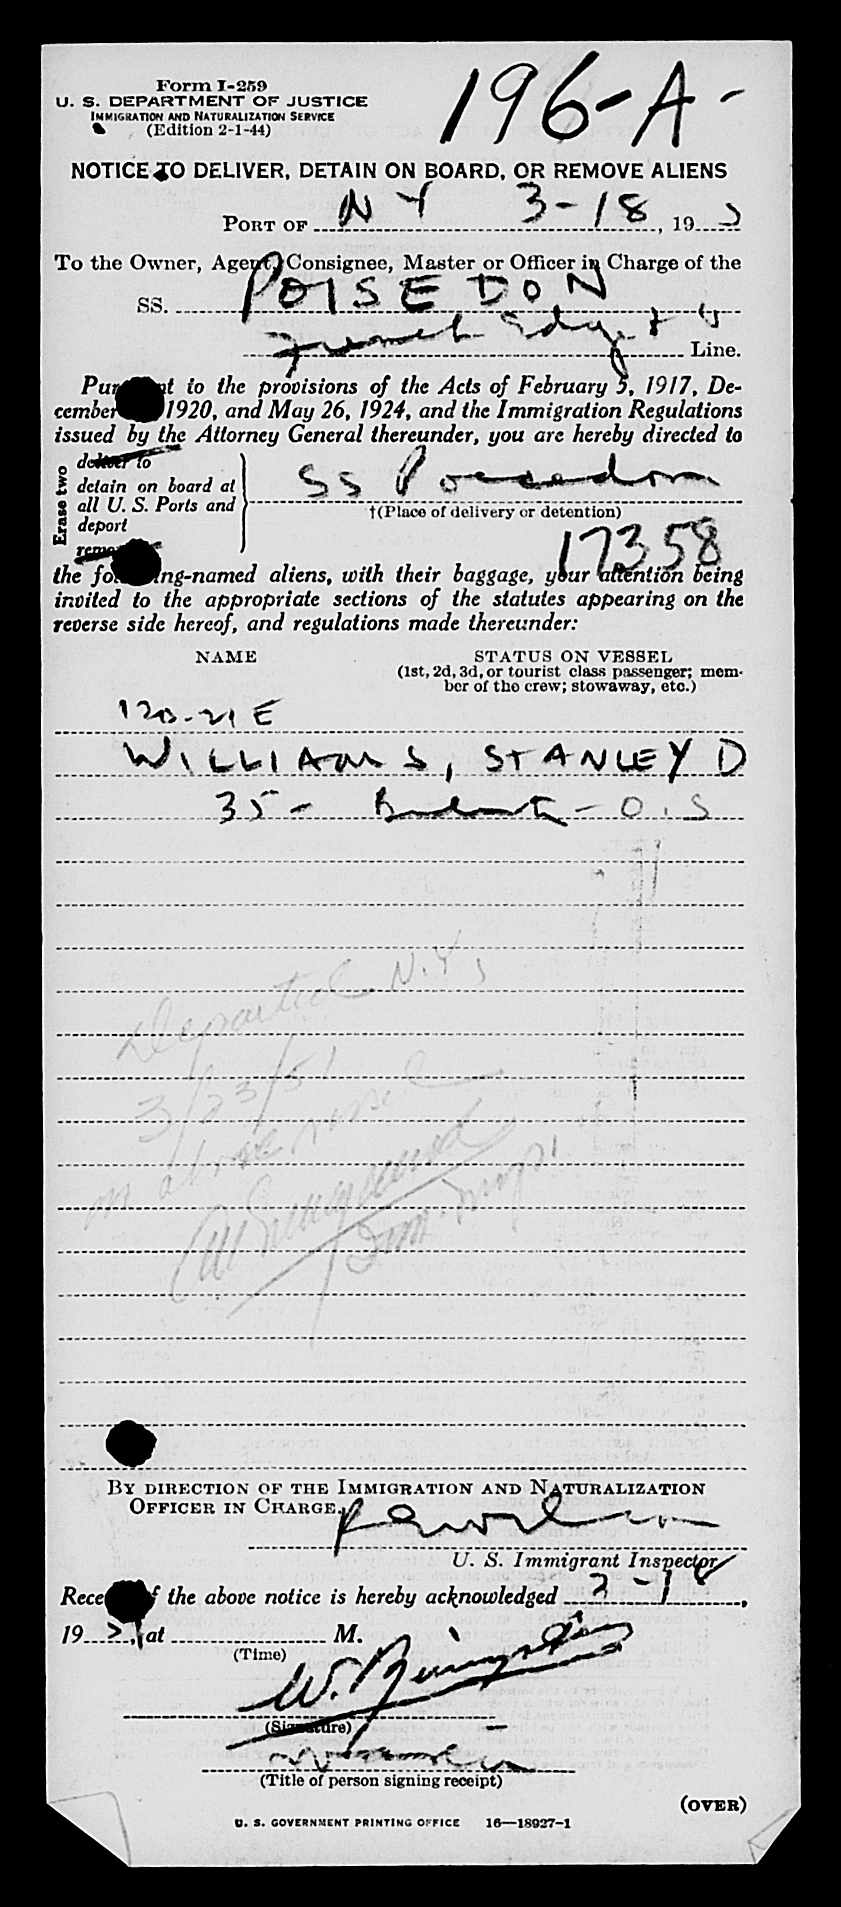 Form I-259
U. S. DEPARTMENT OF JUSTICE
IMMIGRATION AND NATURALIZATION SERVICE
(Edition 2-1-44)
196-A-
NOTICE TO DELIVER, DETAIN ON BOARD, OR REMOVE ALIENS
PORT OF NY 3-18, 19
To the Owner, Agent, Consignee, Master or Officer in Charge of the
SS. POISEDON
French Line.
Pursuant to the provisions of the Acts of February 5, 1917, De-
cember 1920, and May 26, 1924, and the Immigration Regulations
issued by the Attorney General thereunder, you are hereby directed to
Erase two
deliver to
detain on board at
all U. S. Ports and
deport
remove
SS
†(Place of delivery or detention)
17358
the following-named aliens, with their baggage, your attention being
invited to the appropriate sections of the statutes appearing on the
reverse side hereof, and regulations made thereunder:
NAME
STATUS ON VESSEL
(1st, 2d, 3d, or tourist class passenger; mem-
ber of the crew; stowaway, etc.)
WILLIAMS, STANLEY D
35- - O.S
Departed N.Y.
3/23/51
on above vessel
BY DIRECTION OF THE IMMIGRATION AND NATURALIZATION
OFFICER IN CHARGE.
U. S. Immigrant Inspector
Receipt of the above notice is hereby acknowledged 3-18,
19, at M.
(Time)
W.
(Signature)
(Title of person signing receipt)
(OVER)
U. S. GOVERNMENT PRINTING OFFICE 16—18927-1